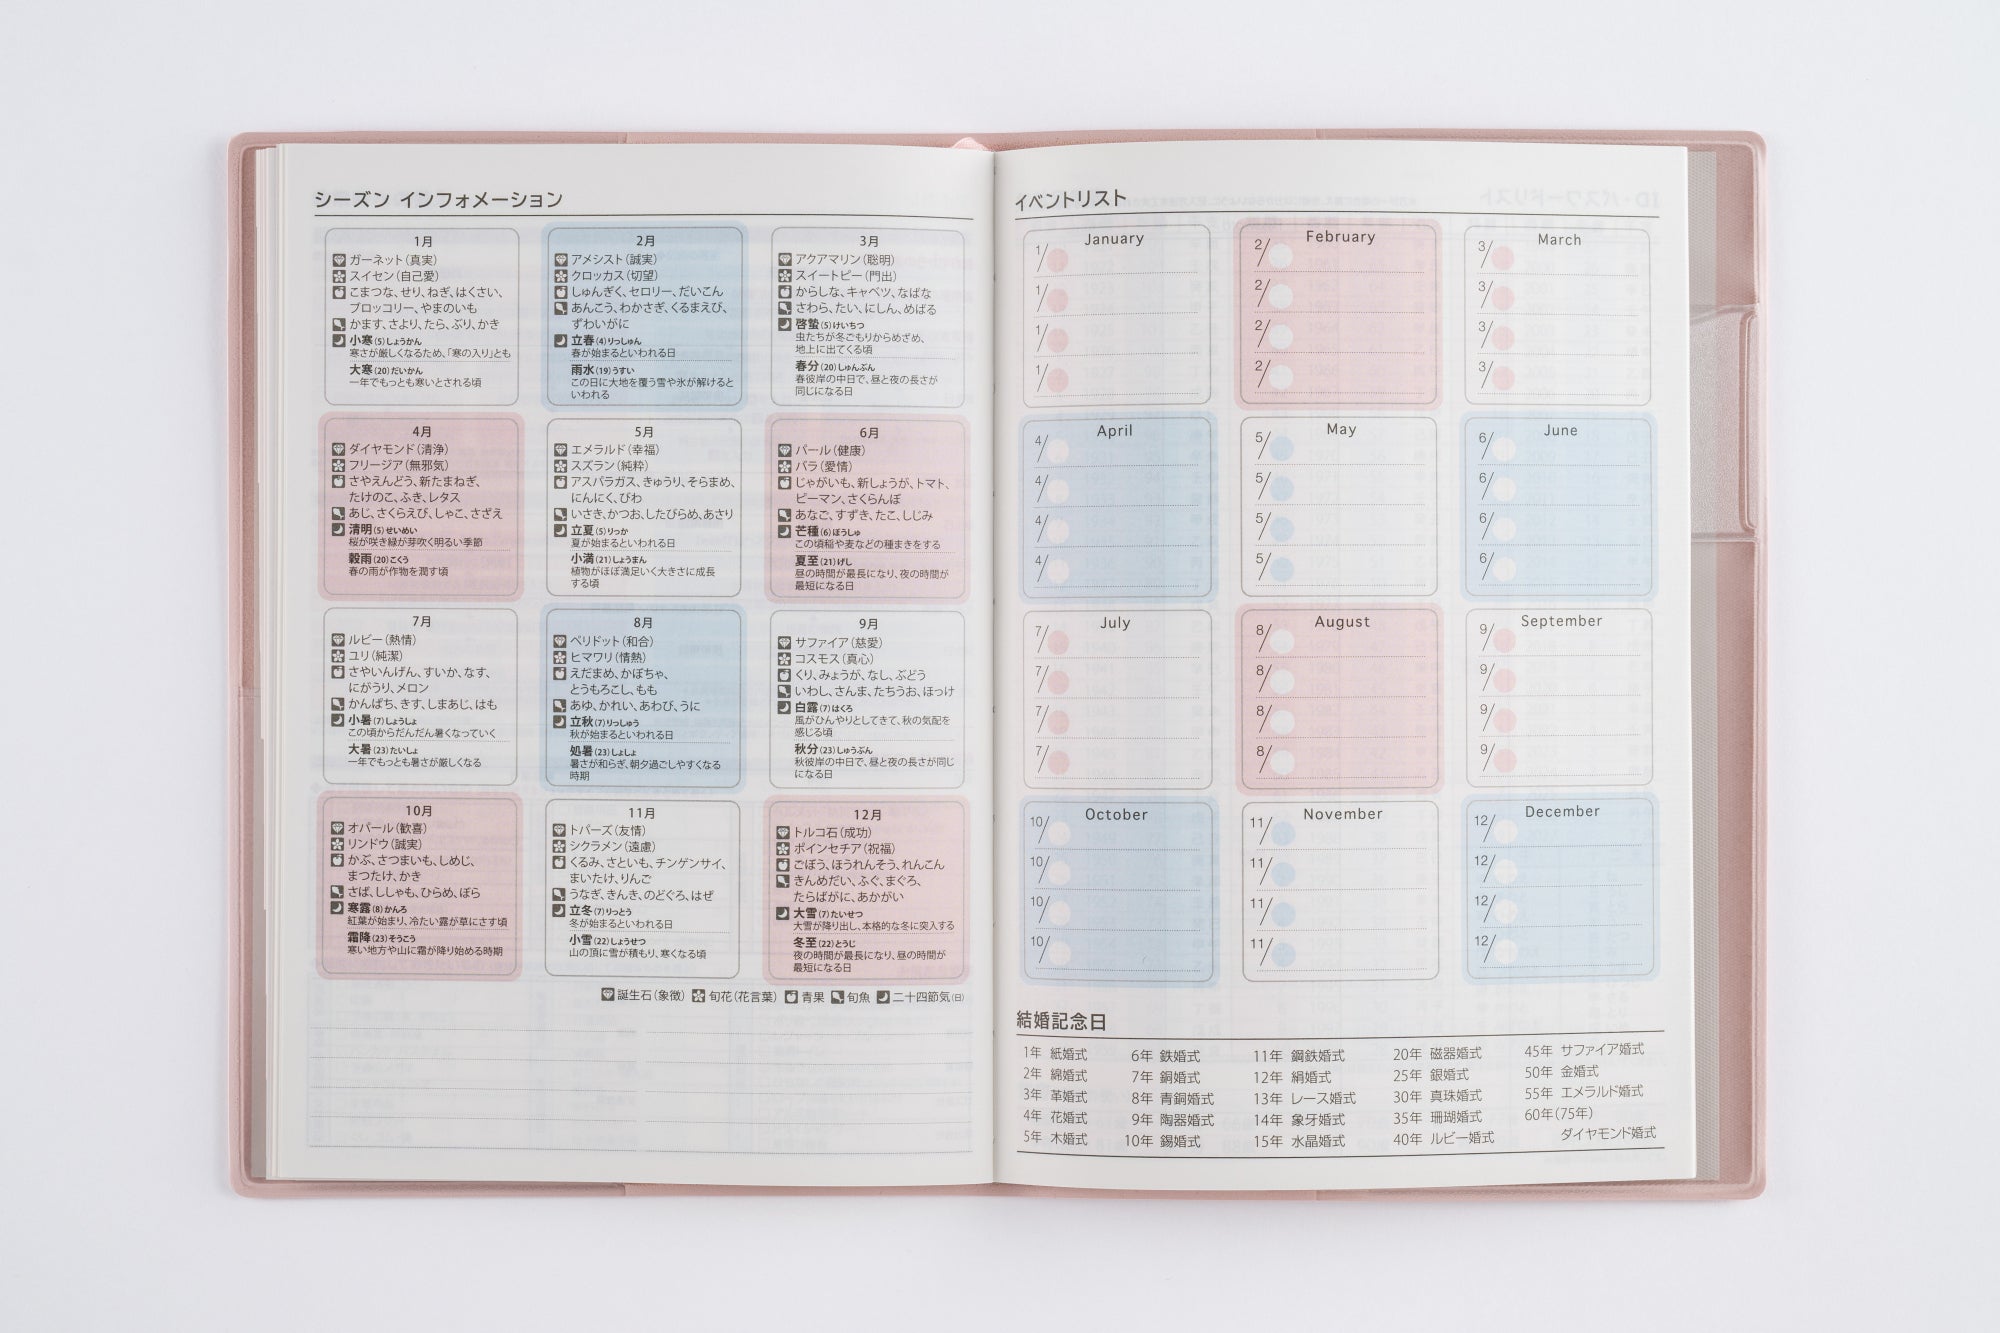 シーズン インフォメーション
1月
ガーネット(真実)
スイセン(自己愛)
こまつな、せり、ねぎ、はくさい、
ブロッコリー、やまのいも
かます、さより、たら、ぶり、かき
小寒(5)しょうかん
寒さが厳しくなるため、「寒の入り」とも
大寒(20)だいかん
一年でもっとも寒いとされる頃
2月
アメシスト(誠実)
クロッカス(切望)
しゅんぎく、セロリー、だいこん
あんこう、わかさぎ、くるまえび、
ずわいがに
立春(4)りっしゅん
春が始まるといわれる日
雨水(19)うすい
この日に大地を覆う雪や氷が解けると
いわれる
3月
アクアマリン(聡明)
スイートピー(門出)
からしな、キャベツ、なばな
さわら、たい、にしん、めばる
啓蟄(5)けいちつ
虫たちが冬ごもりからめざめ、
地上に出てくる頃
春分(20)しゅんぶん
春彼岸の中日で、昼と夜の長さが
同じになる日
4月
ダイヤモンド(清浄)
フリージア(無邪気)
さやえんどう、新たまねぎ、
たけのこ、ふき、レタス
あじ、さくらえび、しゃこ、さざえ
清明(5)せいめい
桜が咲き緑が芽吹く明るい季節
穀雨(20)こくう
春の雨が作物を潤す頃
5月
エメラルド(幸福)
スズラン(純粋)
アスパラガス、きゅうり、そらまめ、
にんにく、びわ
いさき、かつお、したびらめ、あさり
立夏(5)りっか
夏が始まるといわれる日
小満(21)しょうまん
植物がほぼ満足いく大きさに成長
する頃
6月
パール(健康)
バラ(愛情)
じゃがいも、新しょうが、トマト、
ピーマン、さくらんぼ
あなご、すずき、たこ、しじみ
芒種(6)ぼうしゅ
この頃稲や麦などの種まきをする
夏至(21)げし
昼の時間が最長になり、夜の時間が
最短になる日
7月
ルビー(熱情)
ユリ(純潔)
さやいんげん、すいか、なす、
にがうり、メロン
かんぱち、きす、しまあじ、はも
小暑(7)しょうしょ
この頃からだんだん暑くなっていく
大暑(23)たいしょ
一年でもっとも暑さが厳しくなる
8月
ペリドット(和合)
ヒマワリ(情熱)
えだまめ、かぼちゃ、
とうもろこし、もも
あゆ、かれい、あわび、うに
立秋(7)りっしゅう
秋が始まるといわれる日
処暑(23)しょしょ
暑さが和らぎ、朝夕過ごしやすくなる
時期
9月
サファイア(慈愛)
コスモス(真心)
くり、みょうが、なし、ぶどう
いわし、さんま、たちうお、ほっけ
白露(7)はくろ
風がひんやりとしてきて、秋の気配を
感じる頃
秋分(23)しゅうぶん
秋彼岸の中日で、昼と夜の長さが同じ
になる日
10月
オパール(歓喜)
リンドウ(誠実)
かぶ、さつまいも、しめじ、
まつたけ、かき
さば、ししゃも、ひらめ、ぼら
寒露(8)かんろ
紅葉が始まり、冷たい露が草にさす頃
霜降(23)そうこう
寒い地方や山に霜が降り始める時期
11月
トパーズ(友情)
シクラメン(遠慮)
くるみ、さといも、チンゲンサイ、
まいたけ、りんご
うなぎ、きんき、のどぐろ、はぜ
立冬(7)りっとう
冬が始まるといわれる日
小雪(22)しょうせつ
山の頂に雪が積もり、寒くなる頃
12月
トルコ石(成功)
ポインセチア(祝福)
ごぼう、ほうれんそう、れんこん
きんめだい、ふぐ、まぐろ、
たらばがに、あかがい
大雪(7)たいせつ
大雪が降り出し、本格的な冬に突入する
冬至(22)とうじ
夜の時間が最長になり、昼の時間が
最短になる日
誕生石(象徴) 旬花(花言葉) 青果 旬魚 二十四節気(日)
イベントリスト
January
1/
1/
1/
1/
February
2/
2/
2/
2/
March
3/
3/
3/
3/
April
4/
4/
4/
4/
May
5/
5/
5/
5/
June
6/
6/
6/
6/
July
7/
7/
7/
7/
August
8/
8/
8/
8/
September
9/
9/
9/
9/
October
10/
10/
10/
10/
November
11/
11/
11/
11/
December
12/
12/
12/
12/
結婚記念日
1年 紙婚式
2年 綿婚式
3年 革婚式
4年 花婚式
5年 木婚式
6年 鉄婚式
7年 銅婚式
8年 青銅婚式
9年 陶器婚式
10年 錫婚式
11年 鋼鉄婚式
12年 絹婚式
13年 レース婚式
14年 象牙婚式
15年 水晶婚式
20年 磁器婚式
25年 銀婚式
30年 真珠婚式
35年 珊瑚婚式
40年 ルビー婚式
45年 サファイア婚式
50年 金婚式
55年 エメラルド婚式
60年(75年)
ダイヤモンド婚式